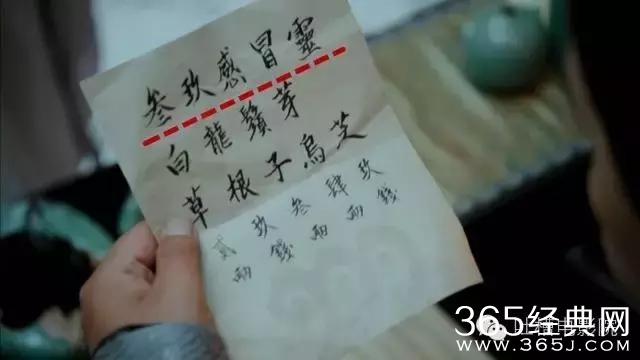 叁玖感冒靈
白龍鬚芽
草根子烏芝
貳玖叁肆玖
兩錢兩兩錢
电影院
365经典网
WWW.365J.COM